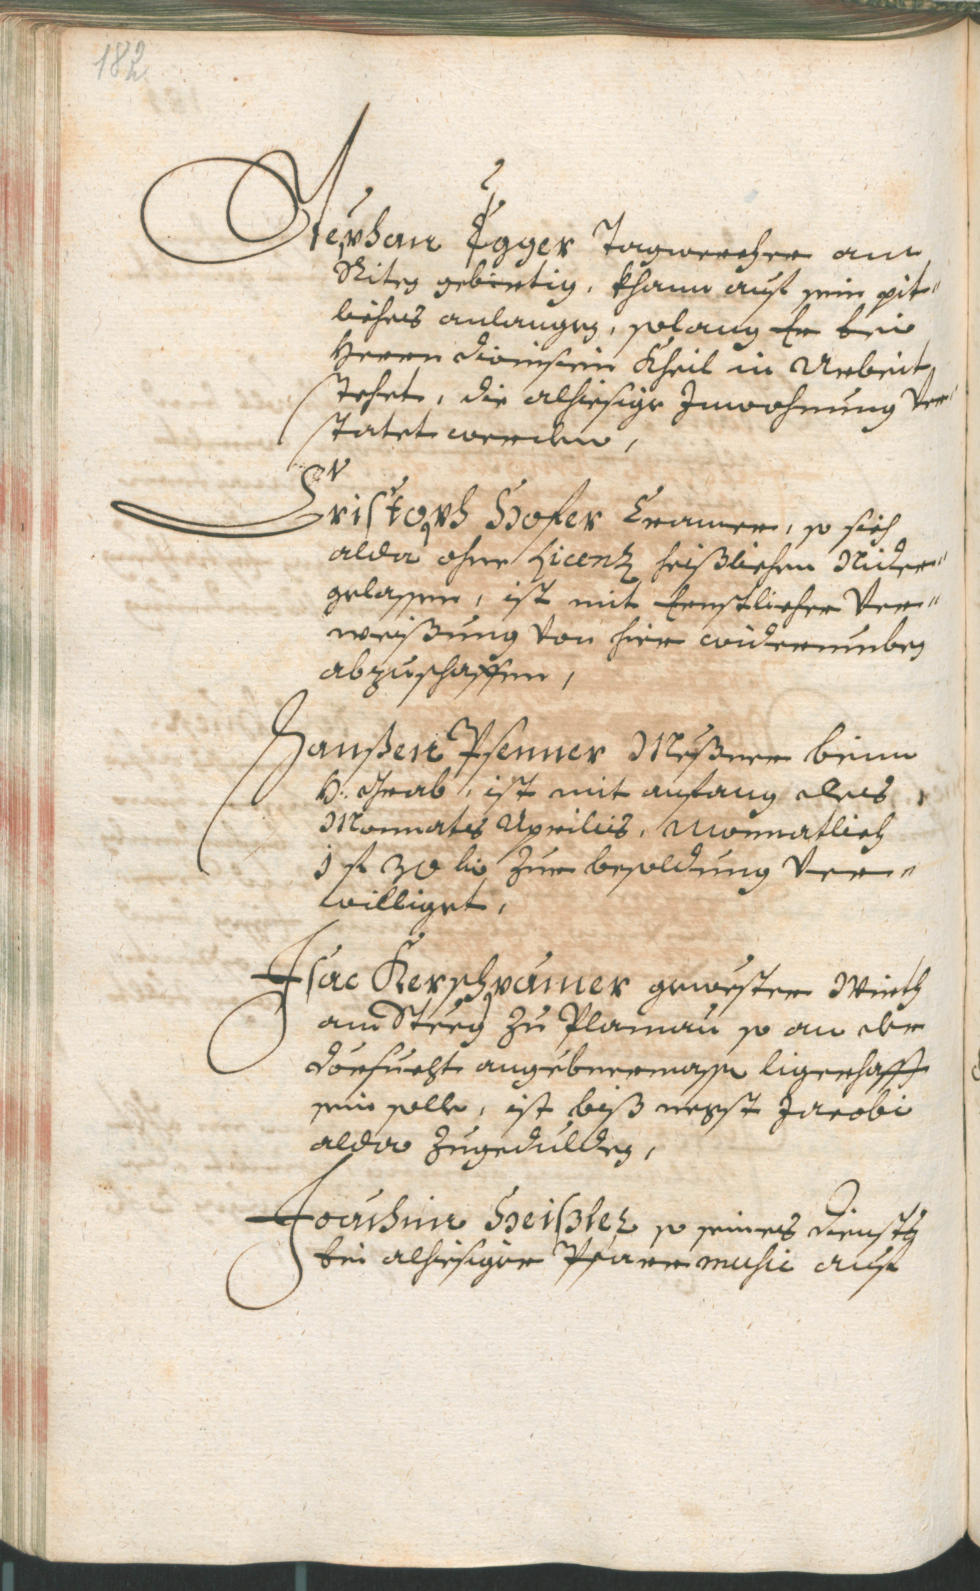 182
Stephan Egger Tagwercher am
Riten gebirtig, khann auf sein pit¬
liches anlangen, solang Er bei
Herrn Dionisien Kheil in Arbeit
stehet, die alhiesige Inwohnung ver¬
statet werden,
Cristoph Hofer Cramer, so sich
alda ohne Licenz heißlichen Nider¬
gelassen, ist mit Ernstlicher Ver¬
weißung von hier widerumben
abzuschaffen,
Hanßen Psenner Meßner beim
H: Grab, ist mit anfang des
Monnats Aprilis, Monnatlich
1 f 30 kr zur besoldung Ver¬
williget,
Isac Kerschpamer gewester Wirth
am Steeg zu Plamau so an der
Dörsucht angebnermassen ligerhafft
sein solle, ist biß negst Jacobi
alda zugedulden,
Joachim Heißler so seines Diensts
bei alhiesiger Pfarrmusic auf